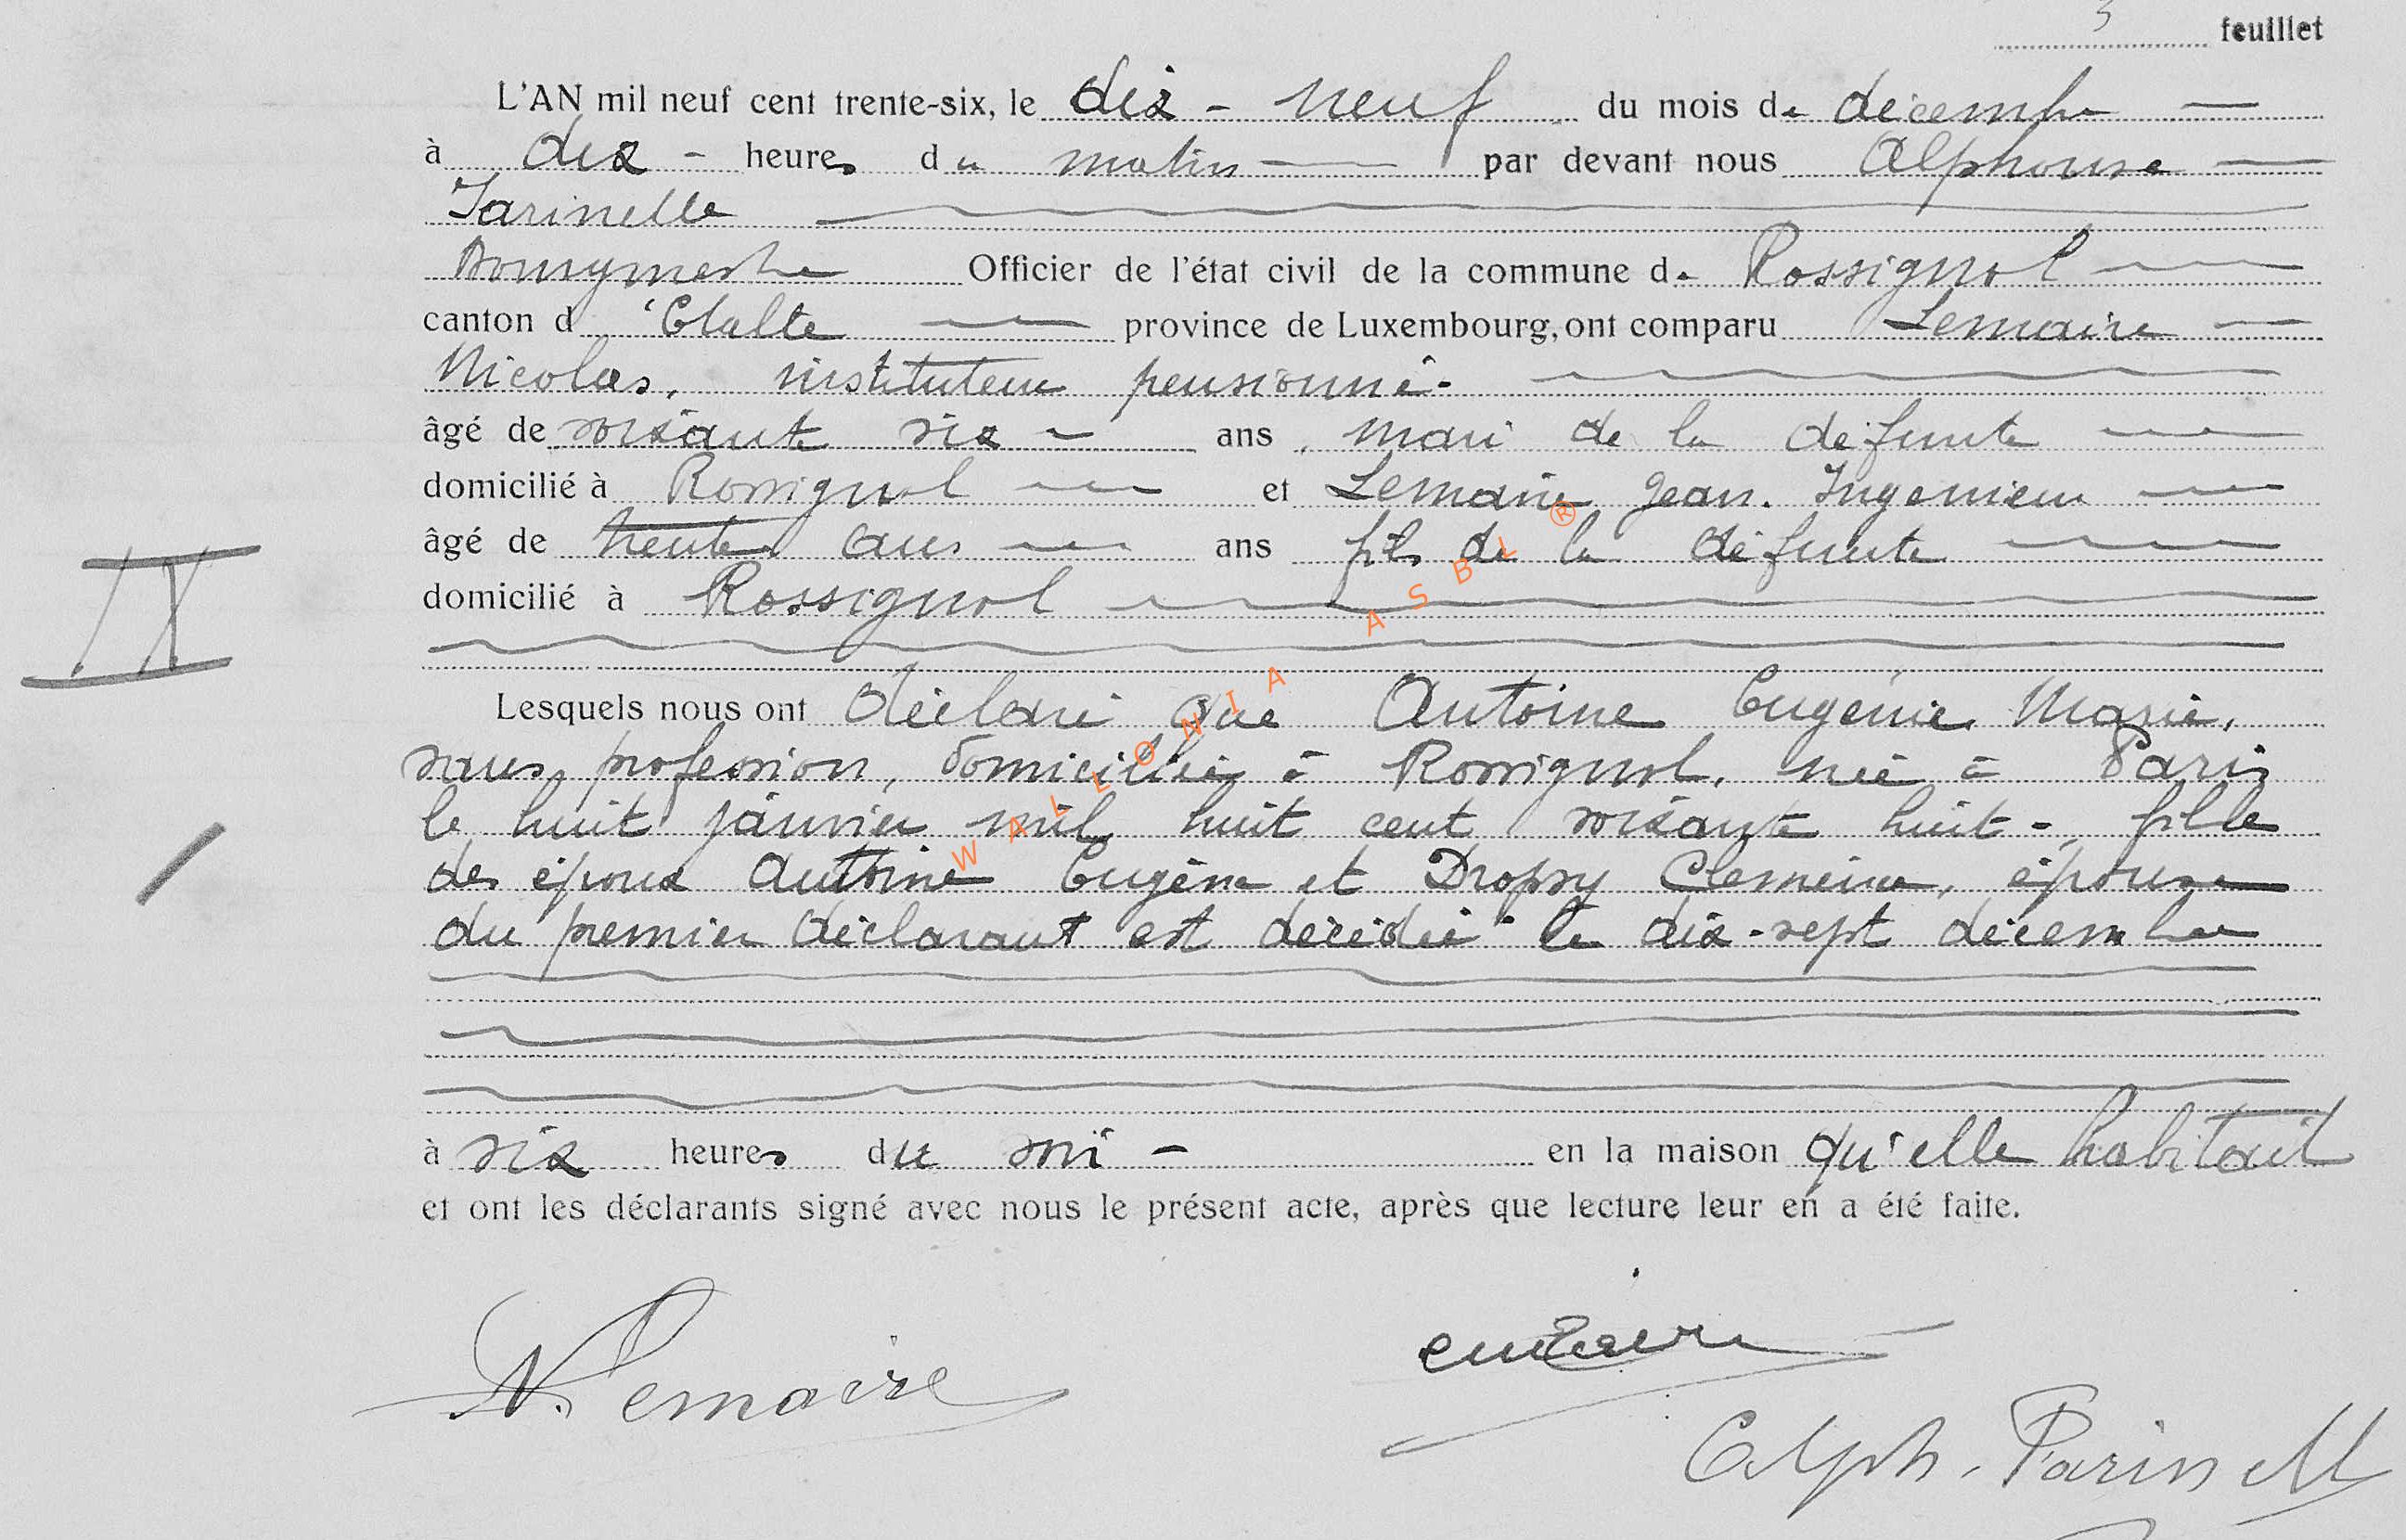 3 feuillet
L'AN mil neuf cent trente-six, le dix - neuf du mois de décembre
à dix - heures du matin par devant nous Alphonse
Jarinelle
Bourgmestre Officier de l'état civil de la commune de Rossignol
canton d'Etalle province de Luxembourg, ont comparu Lemaire
Nicolas, instituteur pensionné.
âgé de soixante six ans, mari de la défunte
domicilié à Rossignol et Lemaire Jean. Ingénieur
âgé de trente ans ans fils de la défunte
domicilié à Rossignol
Lesquels nous ont déclaré que Antoine Eugénie Marie,
sans profession, domiciliée à Rossignol, née à Paris
le huit janvier mil huit cent soixante huit -, fille
des époux Antoine Eugène et Dropsy Clémence, épouse
du premier déclarant est décédée le dix-sept décembre
à six heures du soir - en la maison qu'elle habitait
et ont les déclarants signé avec nous le présent acte, après que lecture leur en a été faite.
N. Lemaire
Alph. Jarinell
II
WALLONIA ASBL ®